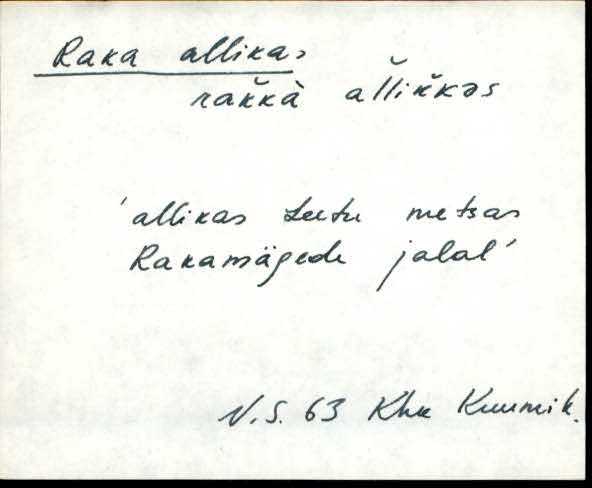 Raka allikas
rak̆k̆à ăl̆lik̆k̆əs
'allikas Leetu metsas
Rakamägede jalal'
N.S. 63 Khk Kuumik.